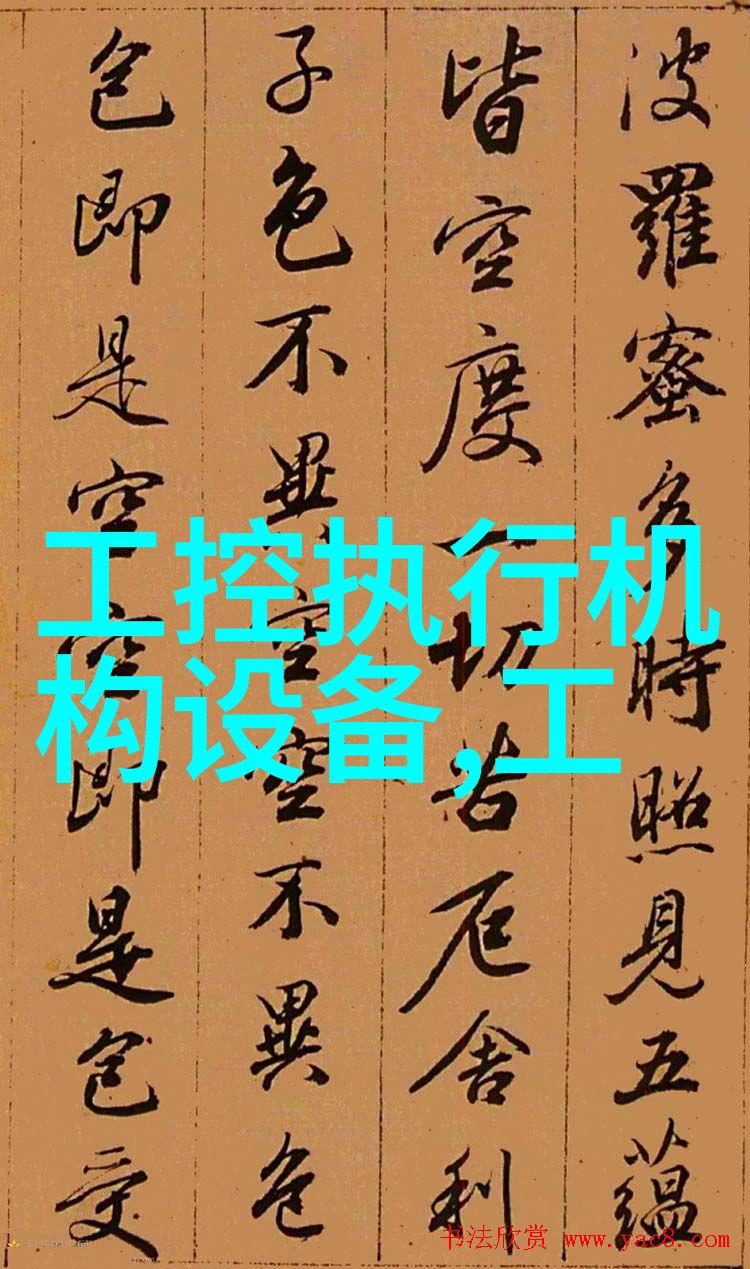 波羅蜜多時照見五蘊
皆空度一切苦厄舍利
子色不異空空不異色
色即是空空即是色受
工控执行机
构设备,工
书法欣赏 www.yac8.com